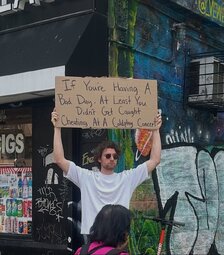 If You're Having A
Bad Day, At Least You
Didn't Get Caught
Cheating At A Coldplay Concert
IGS